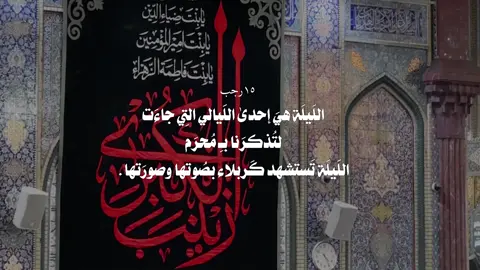 يا بنت ضياء الدين
يا بنت أمير المؤمنين
يا بنت فاطمة الزهراء
١٥ رجب
الليلَة هيَ إحدىٰ اللَيالي التي جاءَت
لتُذكرَنا بـ مُحرَم
الليلَة تَستشهد كَربلاء بصُوتها وصورَتها .
زينب
الكبرى